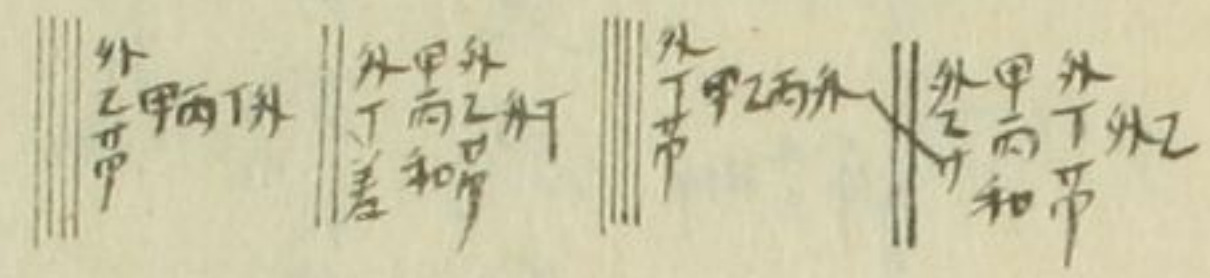 |||| 外乙巾 甲丙丁外
|| 外丁差 甲丙和 外乙巾 外丁
|||| 外丁巾 甲乙丙外
|| 外乙 甲丙和 外丁巾 外乙